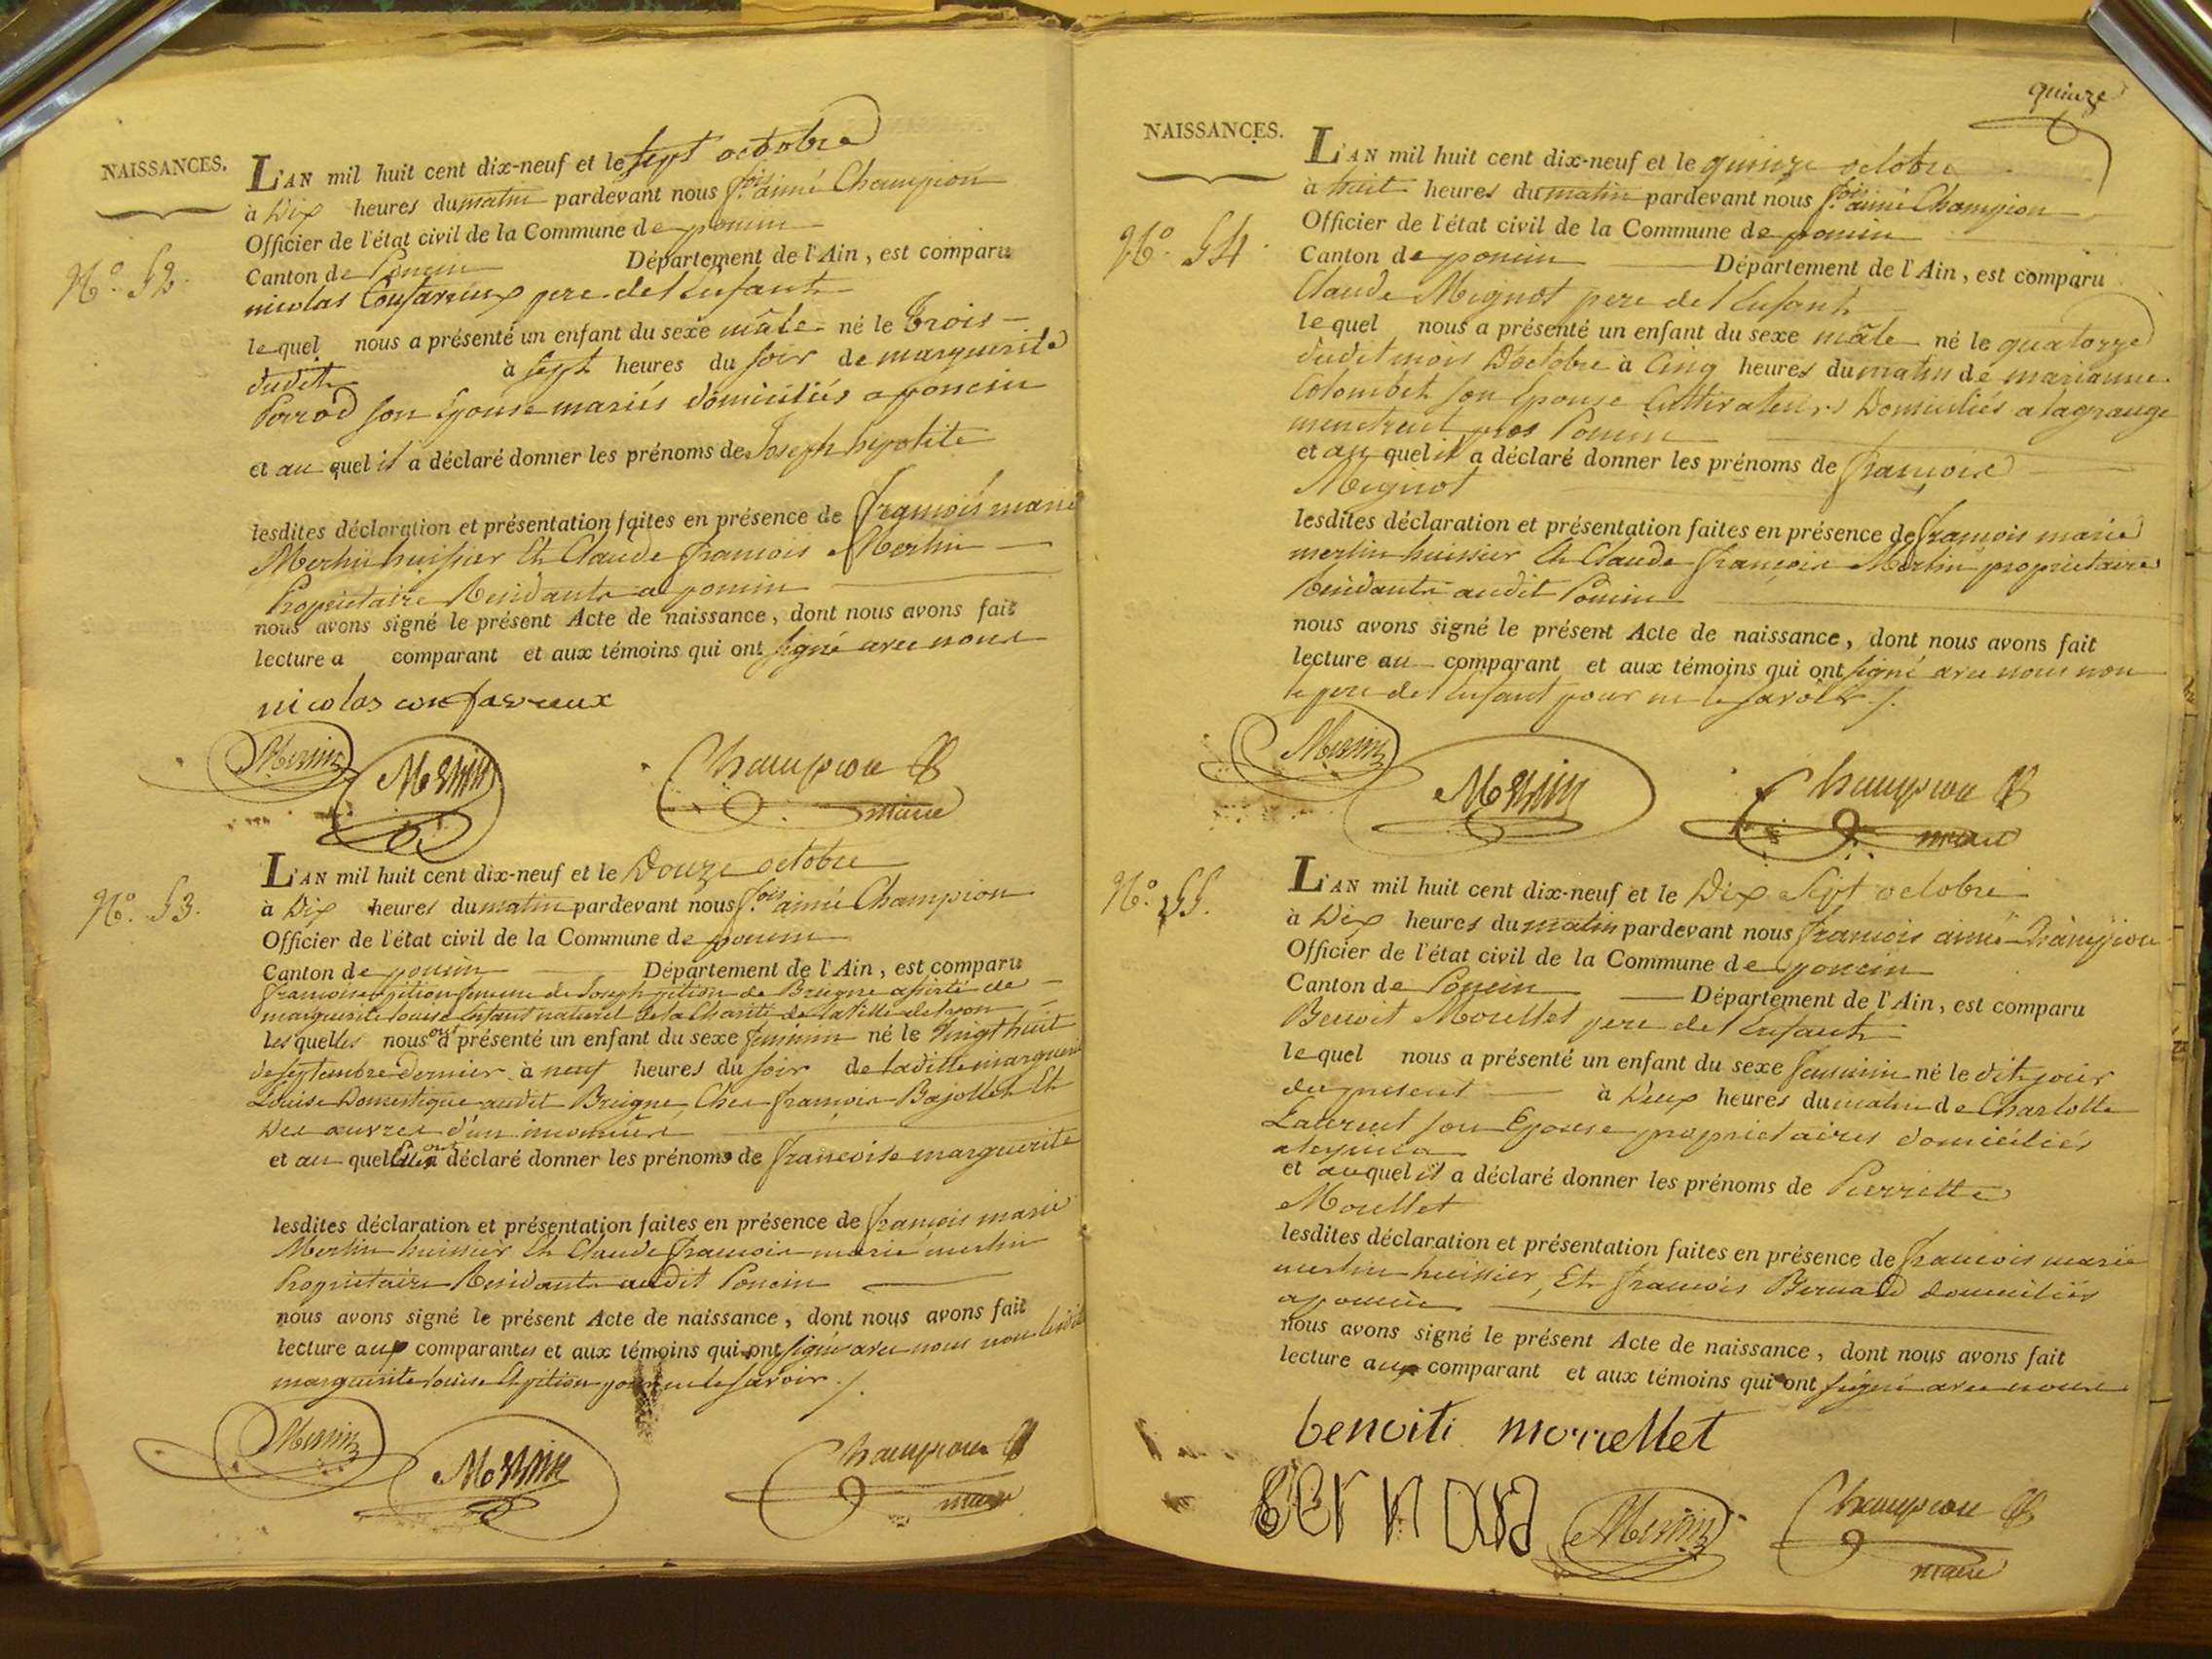 NAISSANCES.
L'AN mil huit cent dix-neuf et le sept octobre
à Dix heures du matin pardevant nous f.ois aimé Champion
Officier de l'état civil de la Commune de poncin
N.o 52.
Canton de Poncin Département de l'Ain, est comparu
nicolas Confavreux pere de l'enfant
lequel nous a présenté un enfant du sexe mâle né le Trois
dudit à sept heures du soir de marguerite
Perrod son Epouse mariés domiciliés a poncin
et au quel il a déclaré donner les prénoms de Joseph hypolite
lesdites déclaration et présentation faites en présence de francois marie
Merlin huissier Et Claude francois Merlin
Proprietaire Residants a poncin
nous avons signé le présent Acte de naissance, dont nous avons fait
lecture a comparant et aux témoins qui ont signé avec nous
nicolas confavreux
Merlin Merlin Champion
maire
L'AN mil huit cent dix-neuf et le Douze octobre
N.o 53.
à Dix heures du matin pardevant nous f.ois aimé Champion
Officier de l'état civil de la Commune de poncin
Canton de poncin Département de l'Ain, est comparu
francoise pition femme de Joseph pition de Breigne assisté de
marguerite Louise Enfant naturel de la Charité de la Ville de Lyon
lesquelles nous ont a présenté un enfant du sexe feminin né le Vingt huit
de septembre dernier à neuf heures du soir de laditte marguerite
Louise Domestique audit Breigne, Chez francois Bajollet Et
Des œuvres d'un inconnu
et au quel Elles ont a déclaré donner les prénoms de francoise marguerite
lesdites déclaration et présentation faites en présence de francois marie
Merlin huissier Et Claude francois marie merlin
Proprietaire Residants audit Poncin
nous avons signé le présent Acte de naissance, dont nous avons fait
lecture aux comparantes et aux témoins qui ont signé avec nous non
marguerite Louise Et pition pour ne le savoir ./.
Merlin Merlin Champion
maire
quinze
NAISSANCES.
L'AN mil huit cent dix-neuf et le quinze octobre
à huit heures du matin pardevant nous f.ois aimé Champion
N.o 54.
Officier de l'état civil de la Commune de poncin
Canton de poncin Département de l'Ain, est comparu
Claude Mignot pere de l'Enfant
lequel nous a présenté un enfant du sexe mâle né le quatorze
dudit mois D'octobre à Cinq heures du matin de marianne
Colombet son Epouse Cultivateurs Domiciliés a lagrange
pres Poncin
et au quel il a déclaré donner les prénoms de francoise
Mignot
lesdites déclaration et présentation faites en présence de francois marie
merlin huissier Et Claude francois Merlin proprietaires
Residants audit Poncin
nous avons signé le présent Acte de naissance, dont nous avons fait
lecture au comparant et aux témoins qui ont signé avec nous non
le pere de l'Enfant pour ne le savoir ./.
Merlin Merlin Champion
maire
N.o 55.
L'AN mil huit cent dix-neuf et le Dix Sept octobre
à Dix heures du matin pardevant nous francois aimé Champion
Officier de l'état civil de la Commune de poncin
Canton de Poncin Département de l'Ain, est comparu
Benoit Morellet pere de l'Enfant
lequel nous a présenté un enfant du sexe feminin né le dit jour
du present à Deux heures du matin de Charlotte
Laurent son Epouse proprietaires domiciliés
et auquel il a déclaré donner les prénoms de Pierrette
Morellet
lesdites déclaration et présentation faites en présence de francois marie
merlin huissier, Et francois Bernard domiciliés
a poncin
nous avons signé le présent Acte de naissance, dont nous avons fait
lecture aux comparant et aux témoins qui ont signé avec nous
benoiti morrellet
Merlin Champion
maire